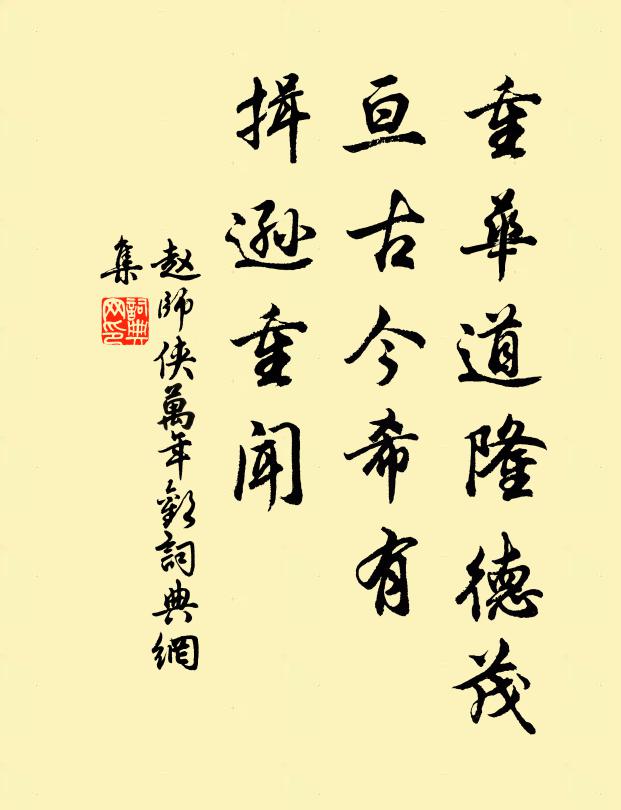 重華道隆德茂
亘古今希有
揖遜重聞
赵師侠萬年歡詞典網
集
詞典
网印